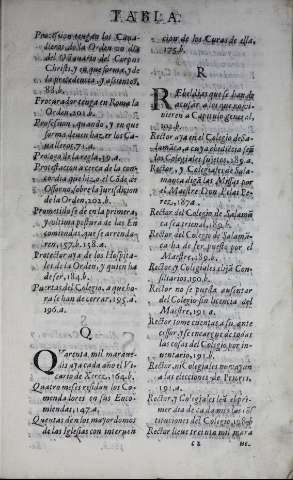 TABLA
Procession tengan los Caua
lleros de la Orden un dia
del Octauario del Corpus
Christi, y en que forma, y de
la precedencia, y asientos,
88.b.
Procurador tenga en Roma la
Orden, 201.b.
Profession, quando, y en que
forma deuen hazer los Ca-
ualleros, 71.a.
Prologo de la regla, 39.a.
Protestacion a cerca de la con
cordia que hizo el Cõde de
Ossorno sobre la jurisdicion
de la Orden, 202.b.
Prometidos se dé en la primera,
y ultima postura de las En
comiendas, que se arrenda-
ren, 157.b. 158.a.
Protector aya de los Hospita-
les de la Orden, y quien ha
de ser, 184.b.
Puertas del Colegio, a que ho-
ra se han de cerrar, 195.a.
196.a.
Q
QVarenta mil maraue-
dis aya cada año el Vi-
cario de Xerez, 164.b.
Quatro meses residan los Co-
mendadores en sus Enco-
miendas, 147.a.
Quentas den los mayordomos
de las Iglesias con interuen
cion de los Curas de ella,
175.b.
R
REbeldes que se han de
acusar a los que no vi-
nieren a Capitulo general,
103.b.
Rector aya en el Colegio de Sa-
lamãca, a cuya obediecia seã
los Colegiales sujetos, 189.a.
Rector, y Colegiales de Sa-
manca digã las Missas por
el Maestre Don Pelay Pe-
rez, 187.a.
Rector del Colegio de Salamã
ca sea trienal, 189.b.
Rector del Colegio de Salamã
ca ha de ser puesto por el
Maestre, 189.b.
Rector, y Colegiales elijã Con-
siliarios, 190.b.
Rector no se pueda ausentar
del Colegio sin licencia del
Maestre, 191.a.
Rector tome cuentas a su ante
cessor, y se encargue de todas
las cosas del Colegio, por in-
uentario, 191.b.
Rector, ni Colegiales no vayan
a las elecciones de Priores,
191.a.
Rector, y Colegiales leã el pri-
mer dia de cada mes las cõs
tituciones del Colegio,
Rector tiene treinta mil mara